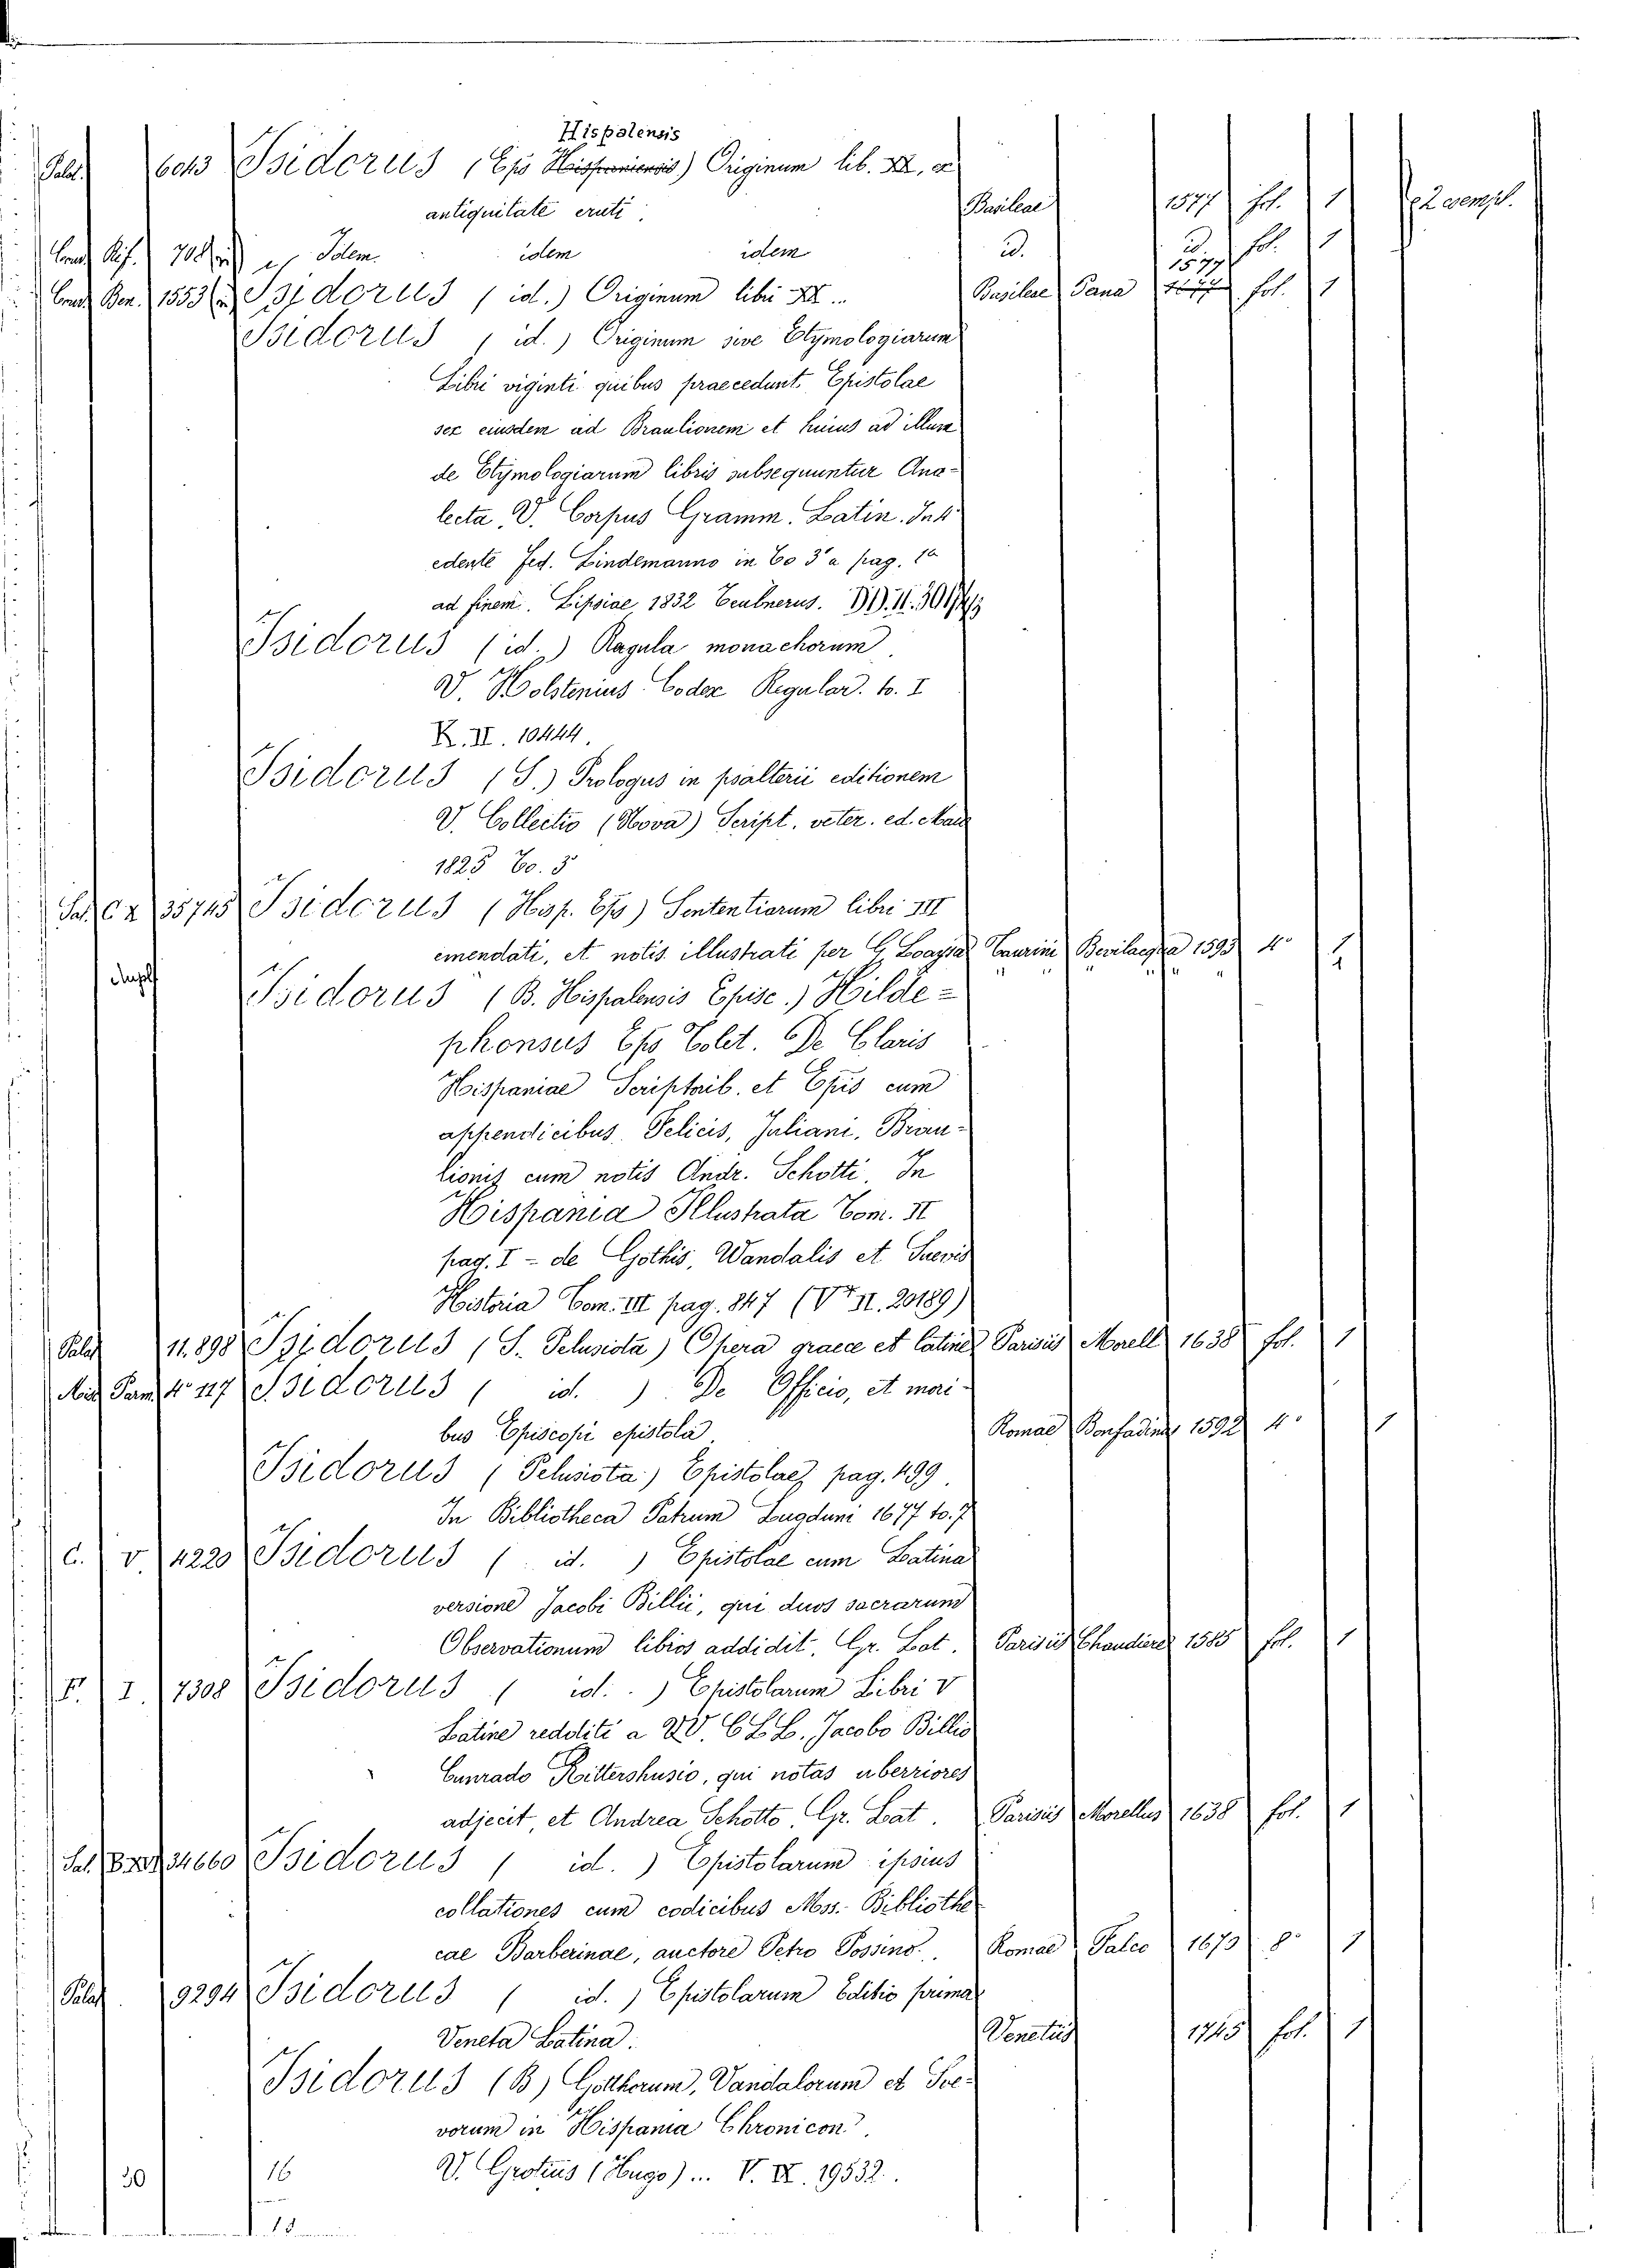 Hispalensis
Palat. 6043 Isidorus (Eps Hispaniensis) Originum lib. XX, ex
antiquitate eruti. Basileae 1577 fol. 1
Idem idem idem id. id. 1577 fol. 1
1553 Isidorus (id.) Originum libri XX... Basileae Perna 1577 fol. 1
Isidorus (id.) Originum sive Etymologiarum
Libri viginti quibus praecedunt Epistolae
sex eiusdem ad Braulionem et huius ad illum
de Etymologiarum libris subsequuntur Ana-
lecta, V. Corpus Gramm. Latin.
edente Fed. Lindemanno in to 3° a pag. 1a
ad finem. Lipsiae 1832 Teubnerus.
Isidorus (id.) Ragula monachorum
V. Holstenius Codex Regular. to. I
K. II. 10444.
Isidorus (S.) Prologus in psalterii editionem
V. Collectio (Nova) Script. veter. ed. Maii
1825 to. 3°
Sal. C x 35745 Isidorus (Hisp. Eps) Sententiarum libri III
emendati, et notis illustrati per G. Loaysa Taurini Bevilaqua 1593 4° 1
Isidorus (B. Hispalensis Episc.) Hilde=
phonsus Eps Tolet. De Claris
Hispaniae Scriptorib. et Epis cum
appendicibus Felicis, Juliani, Brau-
lionis cum notis Andr. Schotti. In
Hispania Illustrata Tom. II
pag. I - de Gothis, Wandalis et Suevis
Historia Tom. III pag. 847 (V. II. 20189)
Palat. 11.898 Isidorus (S. Pelusiota) Opera graece et latine Parisiis Morell 1638 fol. 1
117 Isidorus ( id. ) De Officio, et mori-
bus Episcopi epistola. Romae Bonfadinus 1592 4° 1
Isidorus (Pelusiota) Epistolae, pag. 499.
In Bibliotheca Patrum Lugduni 1677 to. 7
C. V. 4220 Isidorus ( id. ) Epistolae cum Latina
versione Jacobi Billii, qui duos sacrarum
Observationum libros addidit, Gr. Lat. Parisiis Chaudiere 1585 fol. 1
F. I. 7308 Isidorus ( id. ) Epistolarum Libri V
Latine redditi a VV. CLL. Jacobo Billio
Cunrado Rittershusio, qui notas uberriores
adjecit, et Andrea Schotto, Gr. Lat. Parisiis Morellus 1638 fol. 1
34660 Isidorus ( id. ) Epistolarum ipsius
collationes cum codicibus Mss. Bibliothe
cae Barberinae, auctore Petro Possino. Romae Falco 1670 8° 1
Palat. 9294 Isidorus ( id. ) Epistolarum Editio prima
Veneta Latina. Venetiis 1745 fol. 1
Isidorus (B) Gotthorum, Vandalorum et Sue-
vorum in Hispania Chronicon.
V. Grotius (Hugo)... V. IX. 19532.
30 16